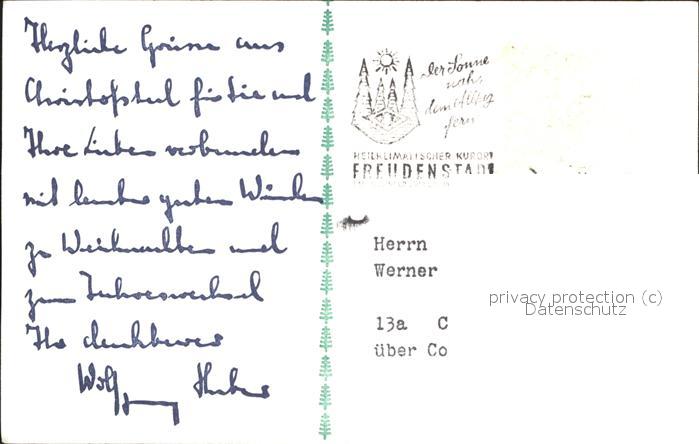 Herzliche Grüsse aus
Christofstal für Sie und
Ihre Lieben verbunden
mit guten Wünschen
zu Weihnachten und
zum Jahreswechsel
Ihr dankbarer
Wolfgang Huber
der Sonne
nah,
dem Alltag
fern
HEILKLIMATISCHER KURORT
FREUDENSTADT
Herrn
Werner
13a C
über Co
privacy protection (c)
Datenschutz